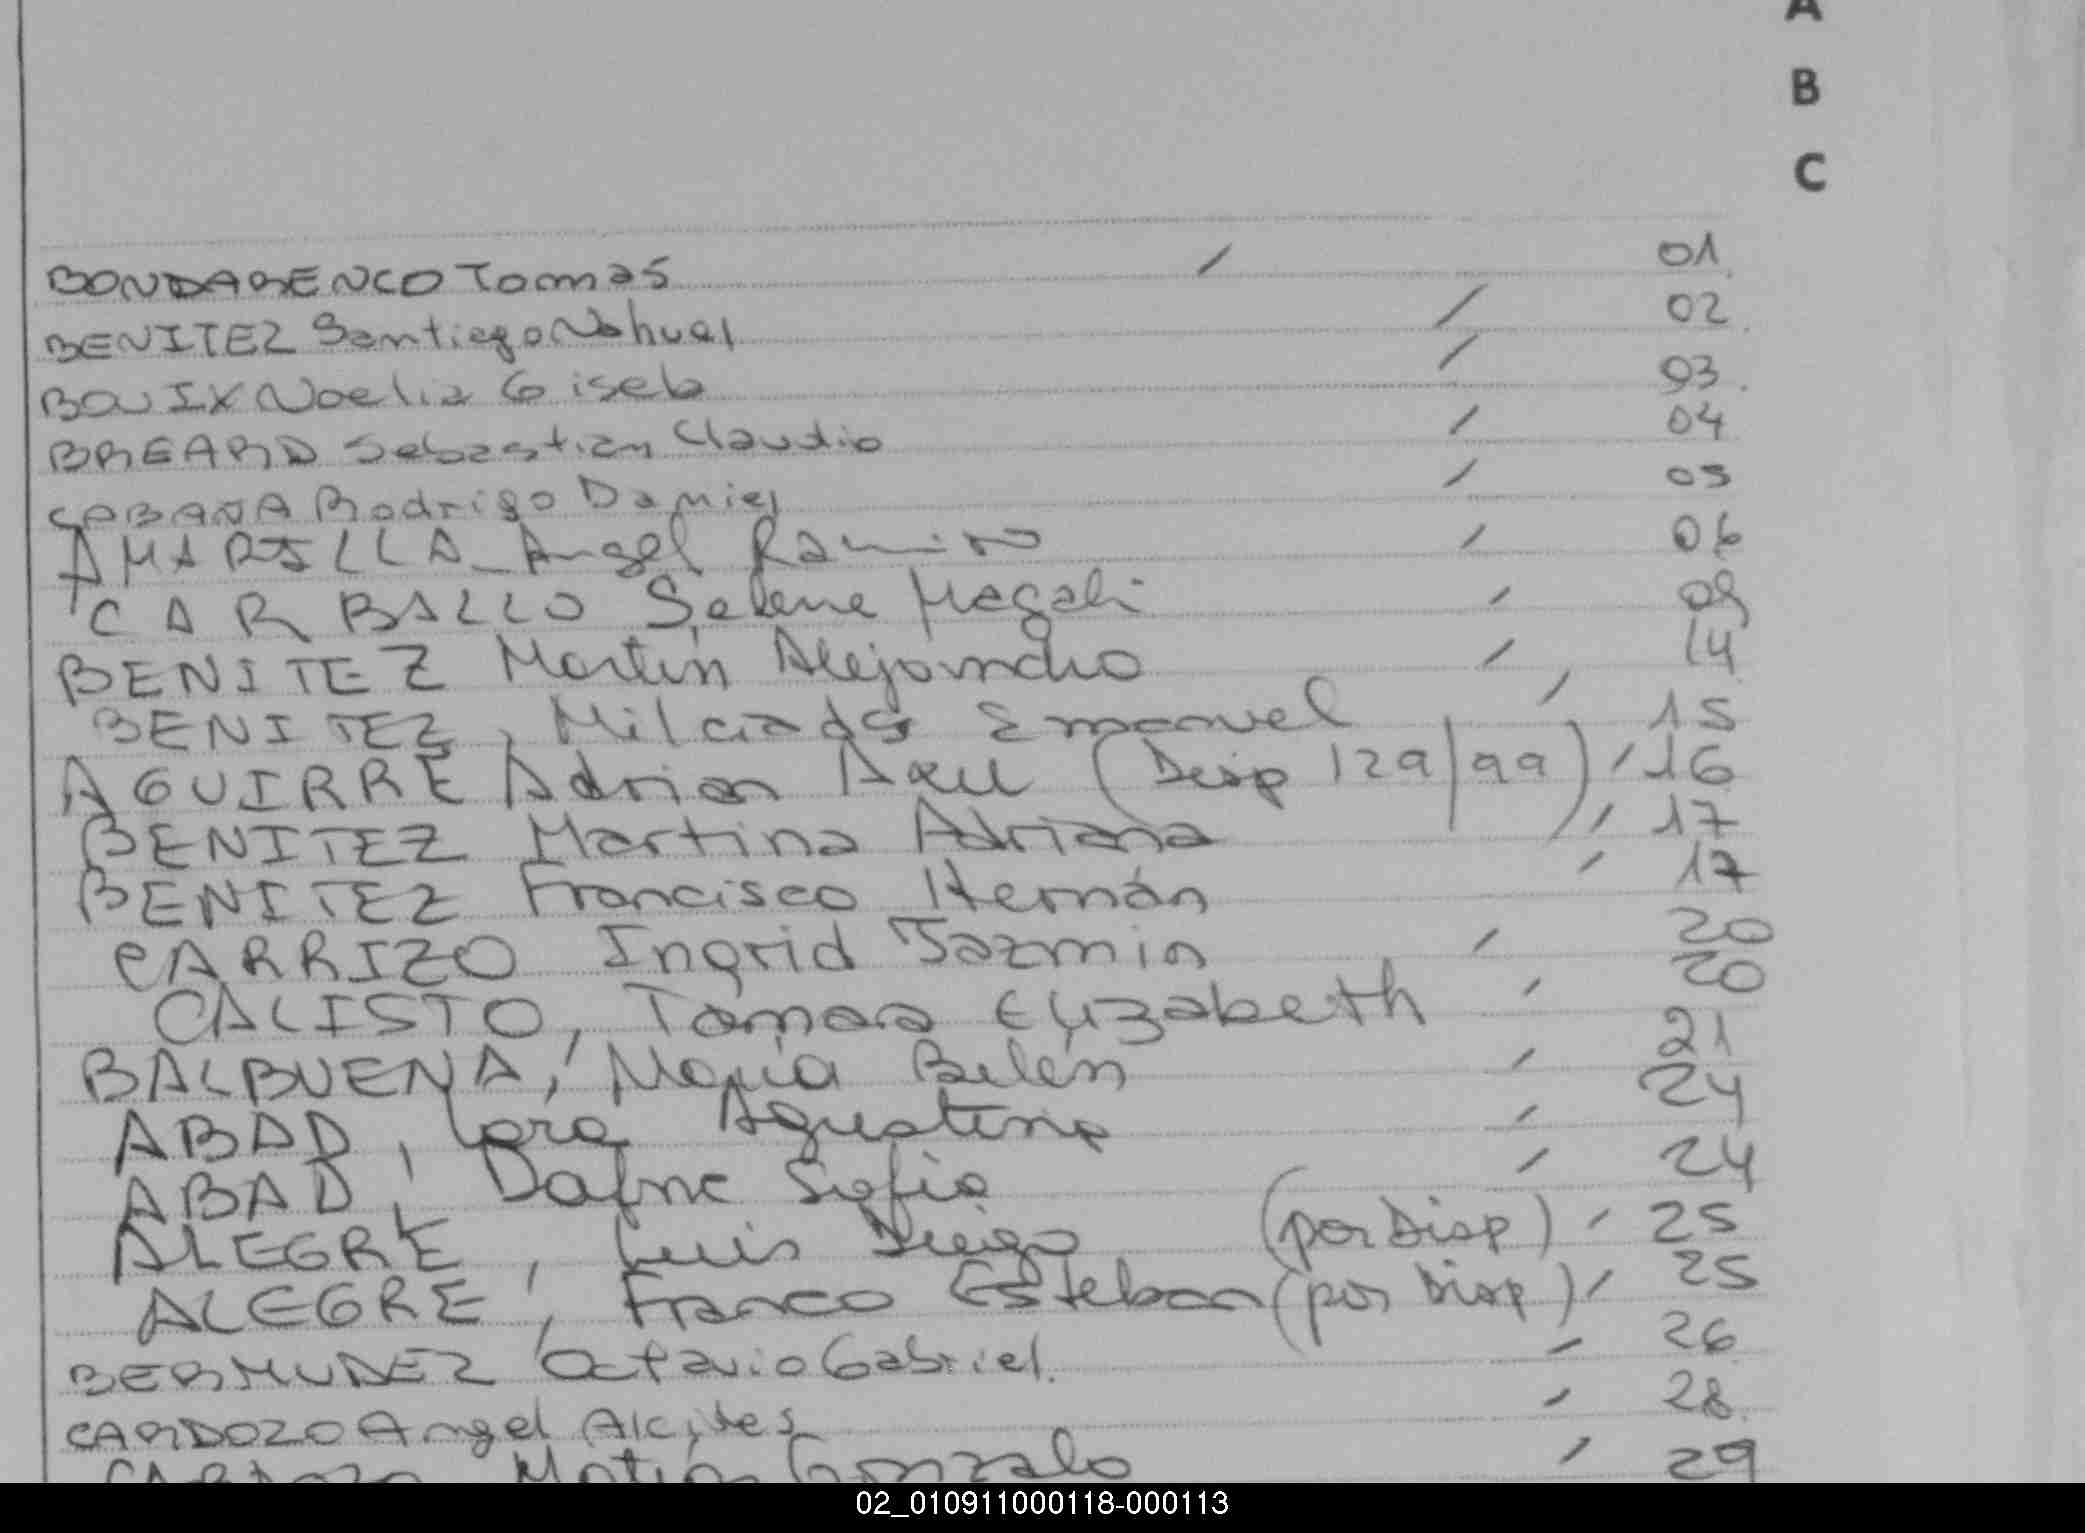 A
B
C
BONDARENCO Tomas / 01
BENITEZ Santiago Nahuel / 02
BOUIX Noelia Gisela / 03
BREARD Sebastian Claudio / 04
CABANA Rodrigo Daniel / 05
AMARILLA Angel Ramiro / 06
CARBALLO Selene Magali / 09
BENITEZ Martín Alejandro / 14
BENITEZ, Milciades Emanuel / 15
AGUIRRE Adrian (Disp 129/99) / 16
BENITEZ Martina Adriana / 17
BENITEZ Francisco Hernán / 17
CARRIZO Ingrid Jazmin / 20
CALISTO, Tamara Elizabeth / 20
BALBUENA, María Belén / 21
ABAD, Lara Agustina / 24
ABAD, Dafne Sofia / 24
ALEGRE, Luis Diego (por Disp) / 25
ALEGRE, Franco Esteban (por Disp) / 25
BERMUDEZ Octavio Gabriel. / 26
CARDOZO Angel Alcides / 28
CARDOZO Matias Gonzalo / 29
02_010911000118-000113